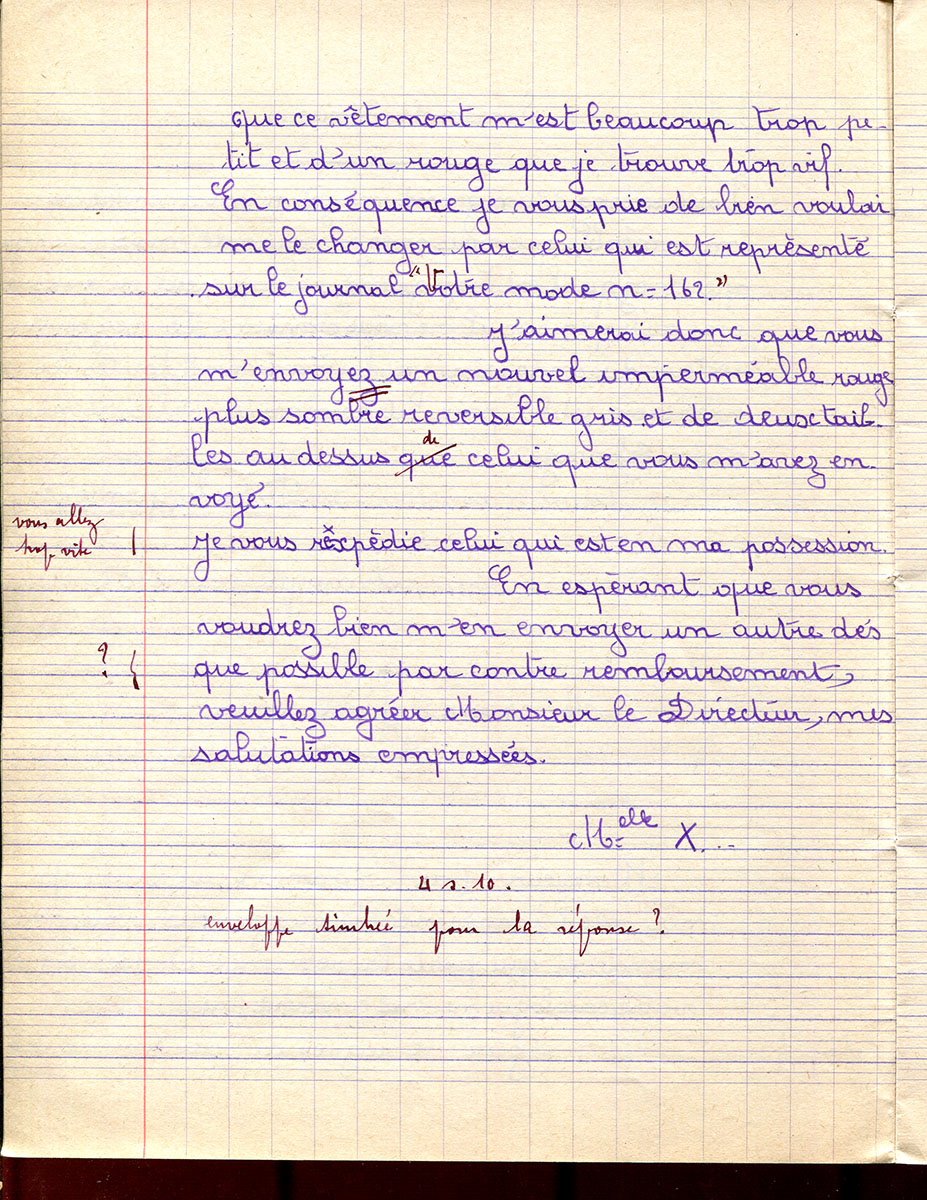 que ce vêtement m'est beaucoup trop pe-
tit et d'un rouge que je trouve trop vif.
En conséquence je vous prie de bien vouloi
me le changer par celui qui est représenté
sur le journal "Votre mode n= 162."
J'aimerai donc que vous
m'envoyez un nouvel imperméable rouge
plus sombre reversible gris et de deux tail-
de
les au dessus que celui que vous m'avez en-
voyé.
vous allez
trop vite
Je vous réexpédie celui qui est en ma possession.
En espérant que vous
voudrez bien m'en envoyer un autre dés
?
que possible par contre remboursement,
veuillez agréer Monsieur le Directeur, mes
salutations empressées.
Melle X...
4 s. 10.
enveloppe timbrée pour la réponse ?